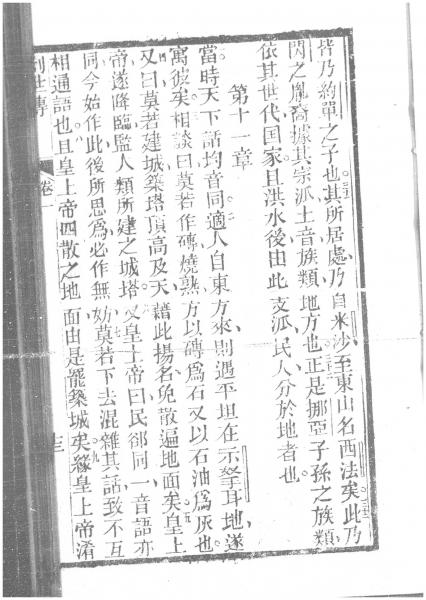 皆乃約單之子也其所居處乃自米沙至東山名西法矣此乃
閃之胤裔據其宗派土音族類地方也正是挪亞子孫之族類
依其世代国家且洪水後由此支派民人分於地者也
第十一章
當時天下話均音同適人自東方來則遇平坦在示拏耳地遂
寓彼矣相談曰莫若作磚燒熟方以磚爲石又以石油爲灰也
又曰莫若建城築塔頂高及天藉此揚名免散遍地面矣皇上
帝遂降臨監人類所建之城塔又皇上帝曰民郤同一音語亦
同今始作此後所思爲必作無妨莫若下去混雜其話致不互
相通語也且皇上帝四散之地面由是罷築城矣緣皇上帝淆
創世傳 卷一 十三